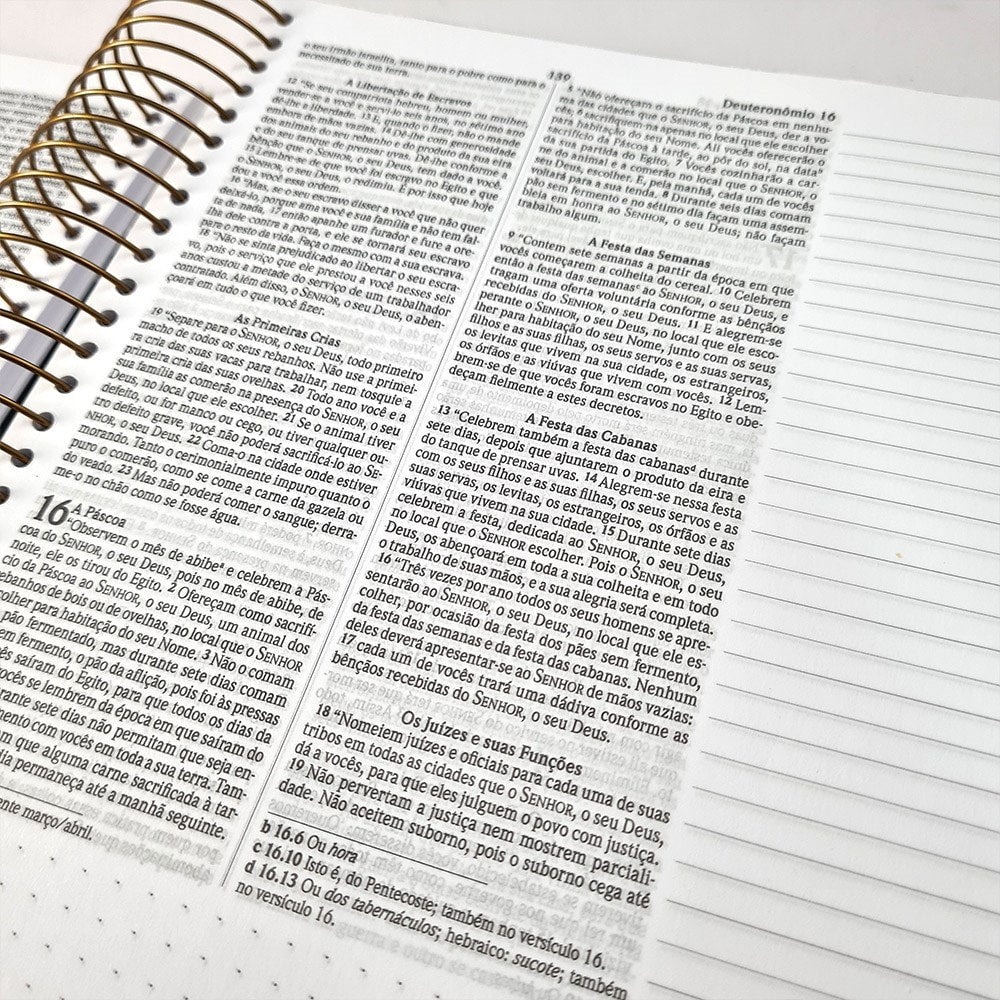 139
Deuteronômio 16
o seu irmão israelita, tanto para o pobre como para o
necessitado de sua terra.
A Libertação de Escravos
12 “Se seu compatriota hebreu, homem ou mulher,
vender-se a você e servi-lo seis anos, no sétimo ano
dê-lhe a liberdade. 13 E, quando o fizer, não o mande
embora de mãos vazias. 14 Dê-lhe com generosidade
dos animais do seu rebanho e do produto da sua eira
e do seu tanque de prensar uvas. Dê-lhe conforme a
bênção que o SENHOR, o seu Deus, tem dado a você.
15 Lembre-se de que você foi escravo no Egito e que
o SENHOR, o seu Deus, o redimiu. É por isso que hoje
dou a você essa ordem.
16 “Mas, se o seu escravo disser a você que não quer
deixá-lo, porque ama você e sua família e não tem fal-
ta de nada, 17 então apanhe um furador e fure a ore-
lha dele contra a porta, e ele se tornará seu escravo
para o resto da vida. Faça o mesmo com a sua escrava.
18 “Não se sinta prejudicado ao libertar o seu escra-
vo, pois o serviço que ele prestou a você nesses seis
anos custou a metade do serviço de um trabalhador
contratado. Além disso, o SENHOR, o seu Deus, o aben-
çoará em tudo o que você fizer.
As Primeiras Crias
19 “Separe para o SENHOR, o seu Deus, todo primeiro
macho de todos os seus rebanhos. Não use a primei-
ra cria das suas vacas para trabalhar, nem tosquie a
primeira cria das suas ovelhas. 20 Todo ano você e a
sua família as comerão na presença do SENHOR, o seu
Deus, no local que ele escolher. 21 Se o animal tiver
defeito, ou for manco ou cego, ou tiver qualquer ou-
tro defeito grave, você não poderá sacrificá-lo ao SE-
NHOR, o seu Deus. 22 Coma-o na cidade onde estiver
morando. Tanto o cerimonialmente impuro quanto o
puro o comerão, como se come a carne da gazela ou
do veado. 23 Mas não poderá comer o sangue; derra-
me-o no chão como se fosse água.
A Páscoa
16 “Observem o mês de abibeª e celebrem a Pás-
coa do SENHOR, o seu Deus, pois no mês de abibe, de
noite, ele os tirou do Egito. 2 Ofereçam como sacrifí-
cio da Páscoa ao SENHOR, o seu Deus, um animal dos
rebanhos de bois ou de ovelhas, no local que o SENHOR
colher para habitação do seu Nome. 3 Não o comam
pão fermentado, mas durante sete dias comam
em fermento, o pão da aflição, pois foi às pressas
ês saíram do Egito, para que todos os dias da
ocês se lembrem da época em que saíram do
rante sete dias não permitam que seja en-
mento com vocês em toda a sua terra. Tam-
m que alguma carne sacrificada à tar-
dia permaneça até a manhã seguinte.
ente março/abril.
5 “Não ofereçam o sacrifício da Páscoa em nenhu-
ma das cidades que o SENHOR, o seu Deus, der a vo-
cês; 6 sacrifiquem-na apenas no local que ele escolher
para habitação do seu Nome. Ali vocês oferecerão o
sacrifício da Páscoa à tarde, ao pôr do sol, na dataᵇ
da sua partida do Egito. 7 Vocês cozinharão a car-
ne do animal e a comerão no local que o SENHOR, o
seu Deus, escolher. E, pela manhã, cada um de vocês
voltará para a sua tenda. 8 Durante seis dias comam
pão sem fermento e no sétimo dia façam uma assem-
bleia em honra ao SENHOR, o seu Deus; não façam
trabalho algum.
A Festa das Semanas
9 “Contem sete semanas a partir da época em que
vocês começarem a colheita do cereal. 10 Celebrem
então a festa das semanasᶜ ao SENHOR, o seu Deus, e
tragam uma oferta voluntária conforme as bênçãos
recebidas do SENHOR, o seu Deus. 11 E alegrem-se
perante o SENHOR, o seu Deus, no local que ele esco-
lher para habitação do seu Nome, junto com os seus
filhos e as suas filhas, os seus servos e as suas servas,
os levitas que vivem na sua cidade, os estrangeiros,
os órfãos e as viúvas que vivem com vocês. 12 Lem-
brem-se de que vocês foram escravos no Egito e obe-
deçam fielmente a estes decretos.
A Festa das Cabanas
13 “Celebrem também a festa das cabanasᵈ durante
sete dias, depois que ajuntarem o produto da eira e
do tanque de prensar uvas. 14 Alegrem-se nessa festa
com os seus filhos e as suas filhas, os seus servos e as
suas servas, os levitas, os estrangeiros, os órfãos e as
viúvas que vivem na sua cidade. 15 Durante sete dias
celebrem a festa, dedicada ao SENHOR, o seu Deus,
no local que o SENHOR escolher. Pois o SENHOR, o seu
Deus, os abençoará em toda a sua colheita e em todo
o trabalho de suas mãos, e a sua alegria será completa.
16 “Três vezes por ano todos os seus homens se apre-
sentarão ao SENHOR, o seu Deus, no local que ele es-
colher, por ocasião da festa dos pães sem fermento,
da festa das semanas e da festa das cabanas. Nenhum
deles deverá apresentar-se ao SENHOR de mãos vazias:
17 cada um de vocês trará uma dádiva conforme as
bênçãos recebidas do SENHOR, o seu Deus.
Os Juízes e suas Funções
18 “Nomeiem juízes e oficiais para cada uma de suas
tribos em todas as cidades que o SENHOR, o seu Deus,
dá a vocês, para que eles julguem o povo com justiça.
19 Não pervertam a justiça nem mostrem parciali-
dade. Não aceitem suborno, pois o suborno cega até
b 16.6 Ou hora
c 16.10 Isto é, do Pentecoste; também no versículo 16.
d 16.13 Ou dos tabernáculos; hebraico: sucote; também
no versículo 16.